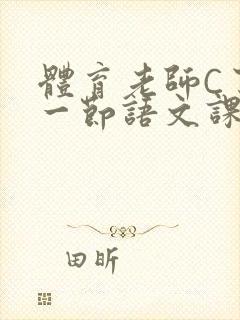 體育老師C
一節語文課
田昕